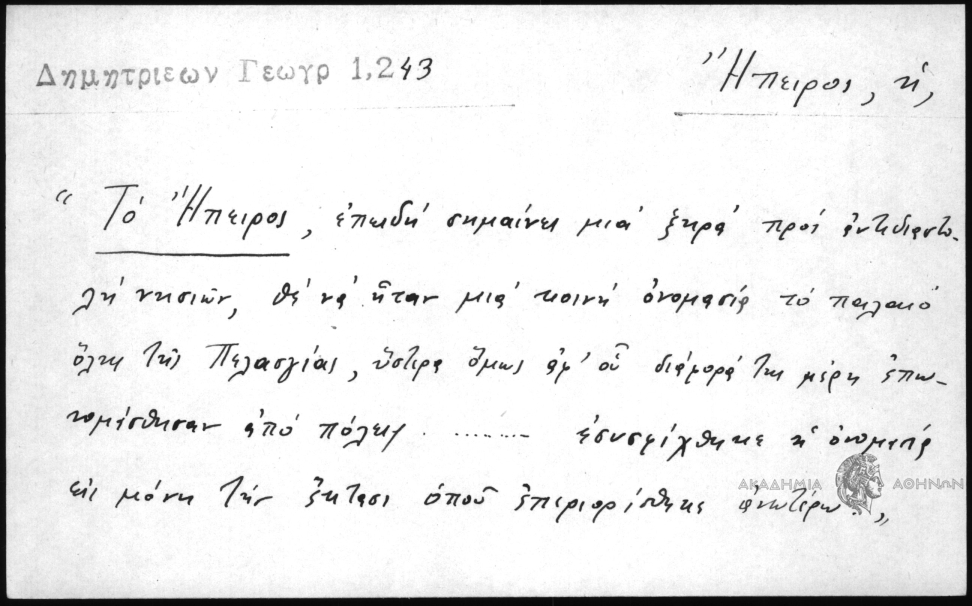 Δημητριεων Γεωγρ 1,243
Ἤπειρος, ἡ,
“ Τό Ἤπειρος, ἐπειδή σημαίνει μιά ξηρά πρός ἀντιδιαστο-
λή νησιῶν, θέ νά ἦταν μιά κοινή ὀνομασία τό παλαιό
ὅλης τῆς Πελασγίας, ὕστερα ὅμως ἀφ' οὗ διάφορά της μέρη ἐπω-
νομάσθησαν ἀπό πόλεις ........ ἐσυσφίχθηκε ἡ ὀνομασία
εἰς μόνη τήν ἔκτασι ὁποῦ ἐπεριορίσθηκε ἀνωτέρω. „
ΑΚΑΔΗΜΙΑ ΑΘΗΝΩΝ